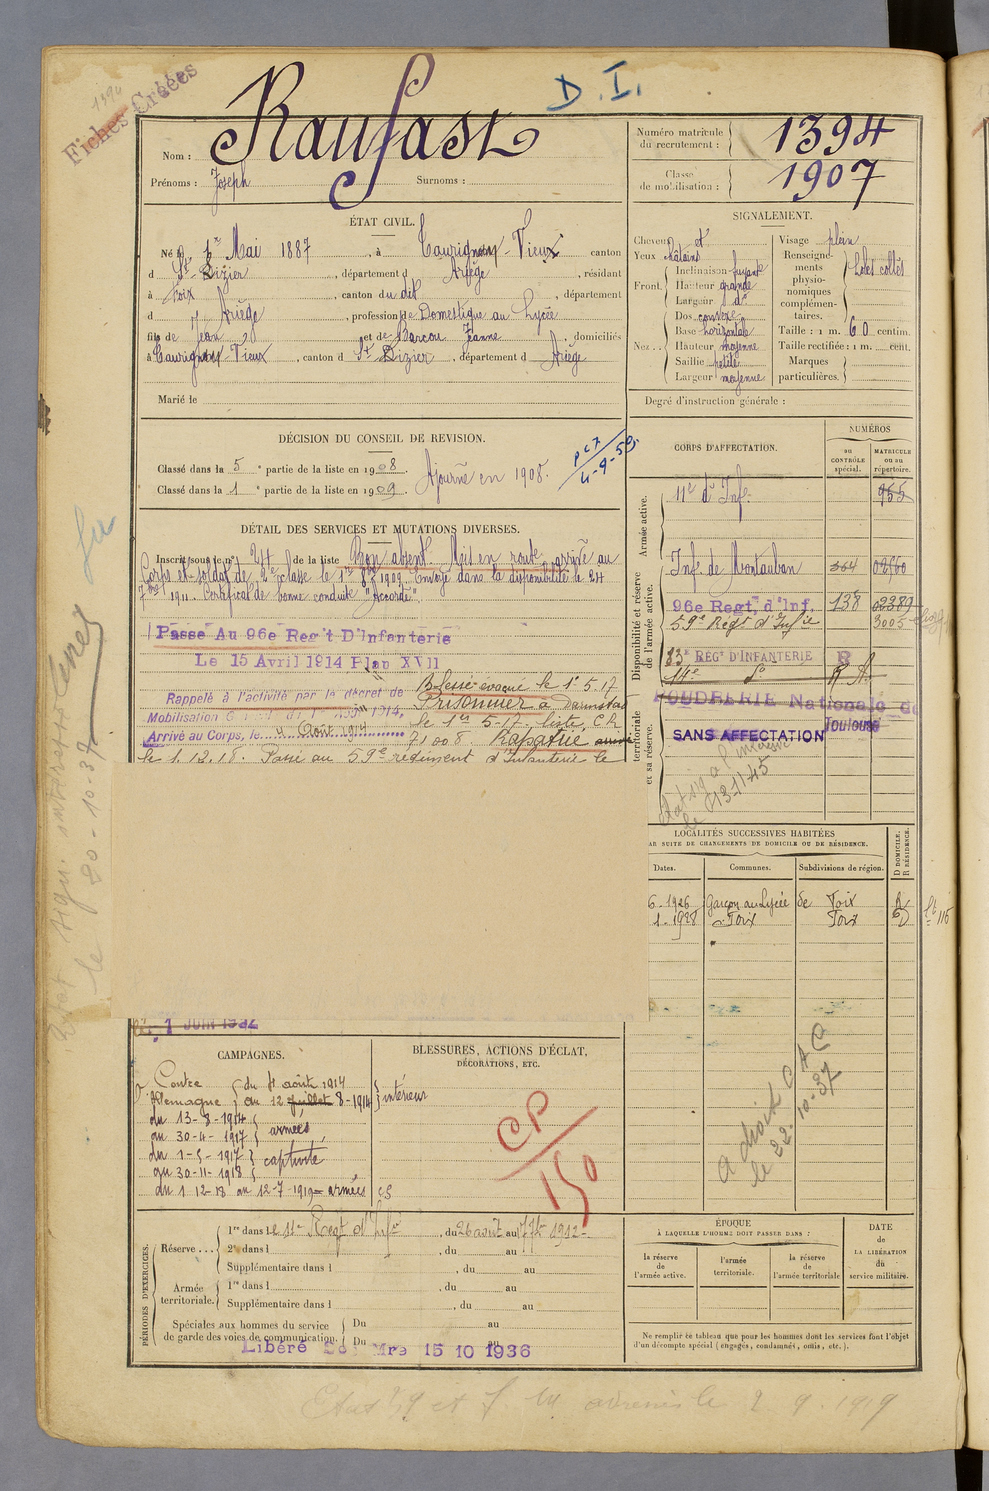 1394
Fiches Créées
D.I.
Nom : Raufast
Prénoms : Joseph Surnoms :
Numéro matricule du recrutement : 1394
Classe de mobilisation : 1907
ÉTAT CIVIL.
Né le 1er Mai 1887, à Taurignan-Vieux canton
d St Lizier, département d Ariège, résidant
à Foix, canton du dit, département
d Ariège, profession de Domestique au Lycée
fils de Jean et de Barcou Jeanne, domiciliés
à Taurignan-Vieux, canton d St Lizier, département d Ariège
Marié le
SIGNALEMENT.
Cheveux et
Yeux châtains
Front. Inclinaison fuyante
Hauteur grande
Largeur do
Nez. Dos convexe
Base horizontale
Hauteur moyenne
Saillie petite
Largeur moyenne
Visage plein
Renseignements physionomiques complémentaires. Lobes collés
Taille : 1 m. 60 centim.
Taille rectifiée : 1 m. cent.
Marques particulières.
Degré d'instruction générale :
DÉCISION DU CONSEIL DE REVISION.
Classé dans la 5e partie de la liste en 1908. Ajourné en 1908.
Classé dans la 1e partie de la liste en 1909.
4-9-59
DÉTAIL DES SERVICES ET MUTATIONS DIVERSES.
Inscrit sous le no 24 de la liste Bon absent. Mis en route, arrivé au
Corps et soldat de 2e classe le 1er 8bre 1909. Envoyé dans la disponibilité le 24
7bre 1911. Certificat de bonne conduite "Accordé".
Passe Au 96e Reg't D'Infanterie
Le 15 Avril 1914 Plan XVII
Rappelé à l'activité par le décret de
Mobilisation G
Arrivé au Corps, le Août 1914
Blessé évacué le 1er 5-17
Prisonnier à Darmstadt
le 1er 5-17. liste C.R
71008 Rapatrié
le 1.12.18. Passé au 59e régiment d'Infanterie le
1 JUIN 1932
CORPS D'AFFECTATION.
NUMÉROS
au CONTRÔLE spécial.
MATRICULE ou au répertoire.
Armée active.
11e d'Inf. 955
Disponibilité et réserve de l'armée active.
Inf. de Montauban 364
96e Regt. d'Inf. 138 02389
59e Régt d'Infie 3005
83e REGT D'INFANTERIE R
14e do R A
territoriale et sa réserve.
POUDRERIE Nationale de
Toulouse
SANS AFFECTATION
le 13-1-45
LOCALITÉS SUCCESSIVES HABITÉES
PAR SUITE DE CHANGEMENTS DE DOMICILE OU DE RÉSIDENCE.
Dates. Communes. Subdivisions de région. D DOMICILE. R RÉSIDENCE.
6-1926 Garçon au Lycée de Foix Foix R
1-1928 Foix Foix D
le 20-10-37
A droit C A C
le 22.10-37
CAMPAGNES.
Contre Allemagne du 4 août 1914
au 12 juillet 8-1914 intérieur
du 13-8-1914
au 30-4-1917 armées
du 1-5-1917
au 30-11-1918 captivité
du 1 12-18 au 12-7-1919 armées
BLESSURES, ACTIONS D'ÉCLAT,
DÉCORATIONS, ETC.
CP
150
PÉRIODES D'EXERCICES.
Réserve... 1re dans le 11e Regt d'Infie, du 26 août au 7 7bre 1912.
2e dans l , du au
Supplémentaire dans l , du au
Armée territoriale. 1re dans l , du au
Supplémentaire dans l , du au
Spéciales aux hommes du service de garde des voies de communication. Du au
Du au
Libéré Mre 15 10 1936
ÉPOQUE
À LAQUELLE L'HOMME DOIT PASSER DANS :
la réserve de l'armée active.
l'armée territoriale.
la réserve de l'armée territoriale
DATE DE LA LIBÉRATION du service militaire.
Ne remplir ce tableau que pour les hommes dont les services font l'objet
d'un décompte spécial (engagés, condamnés, omis, etc.).
le 2 9. 1919